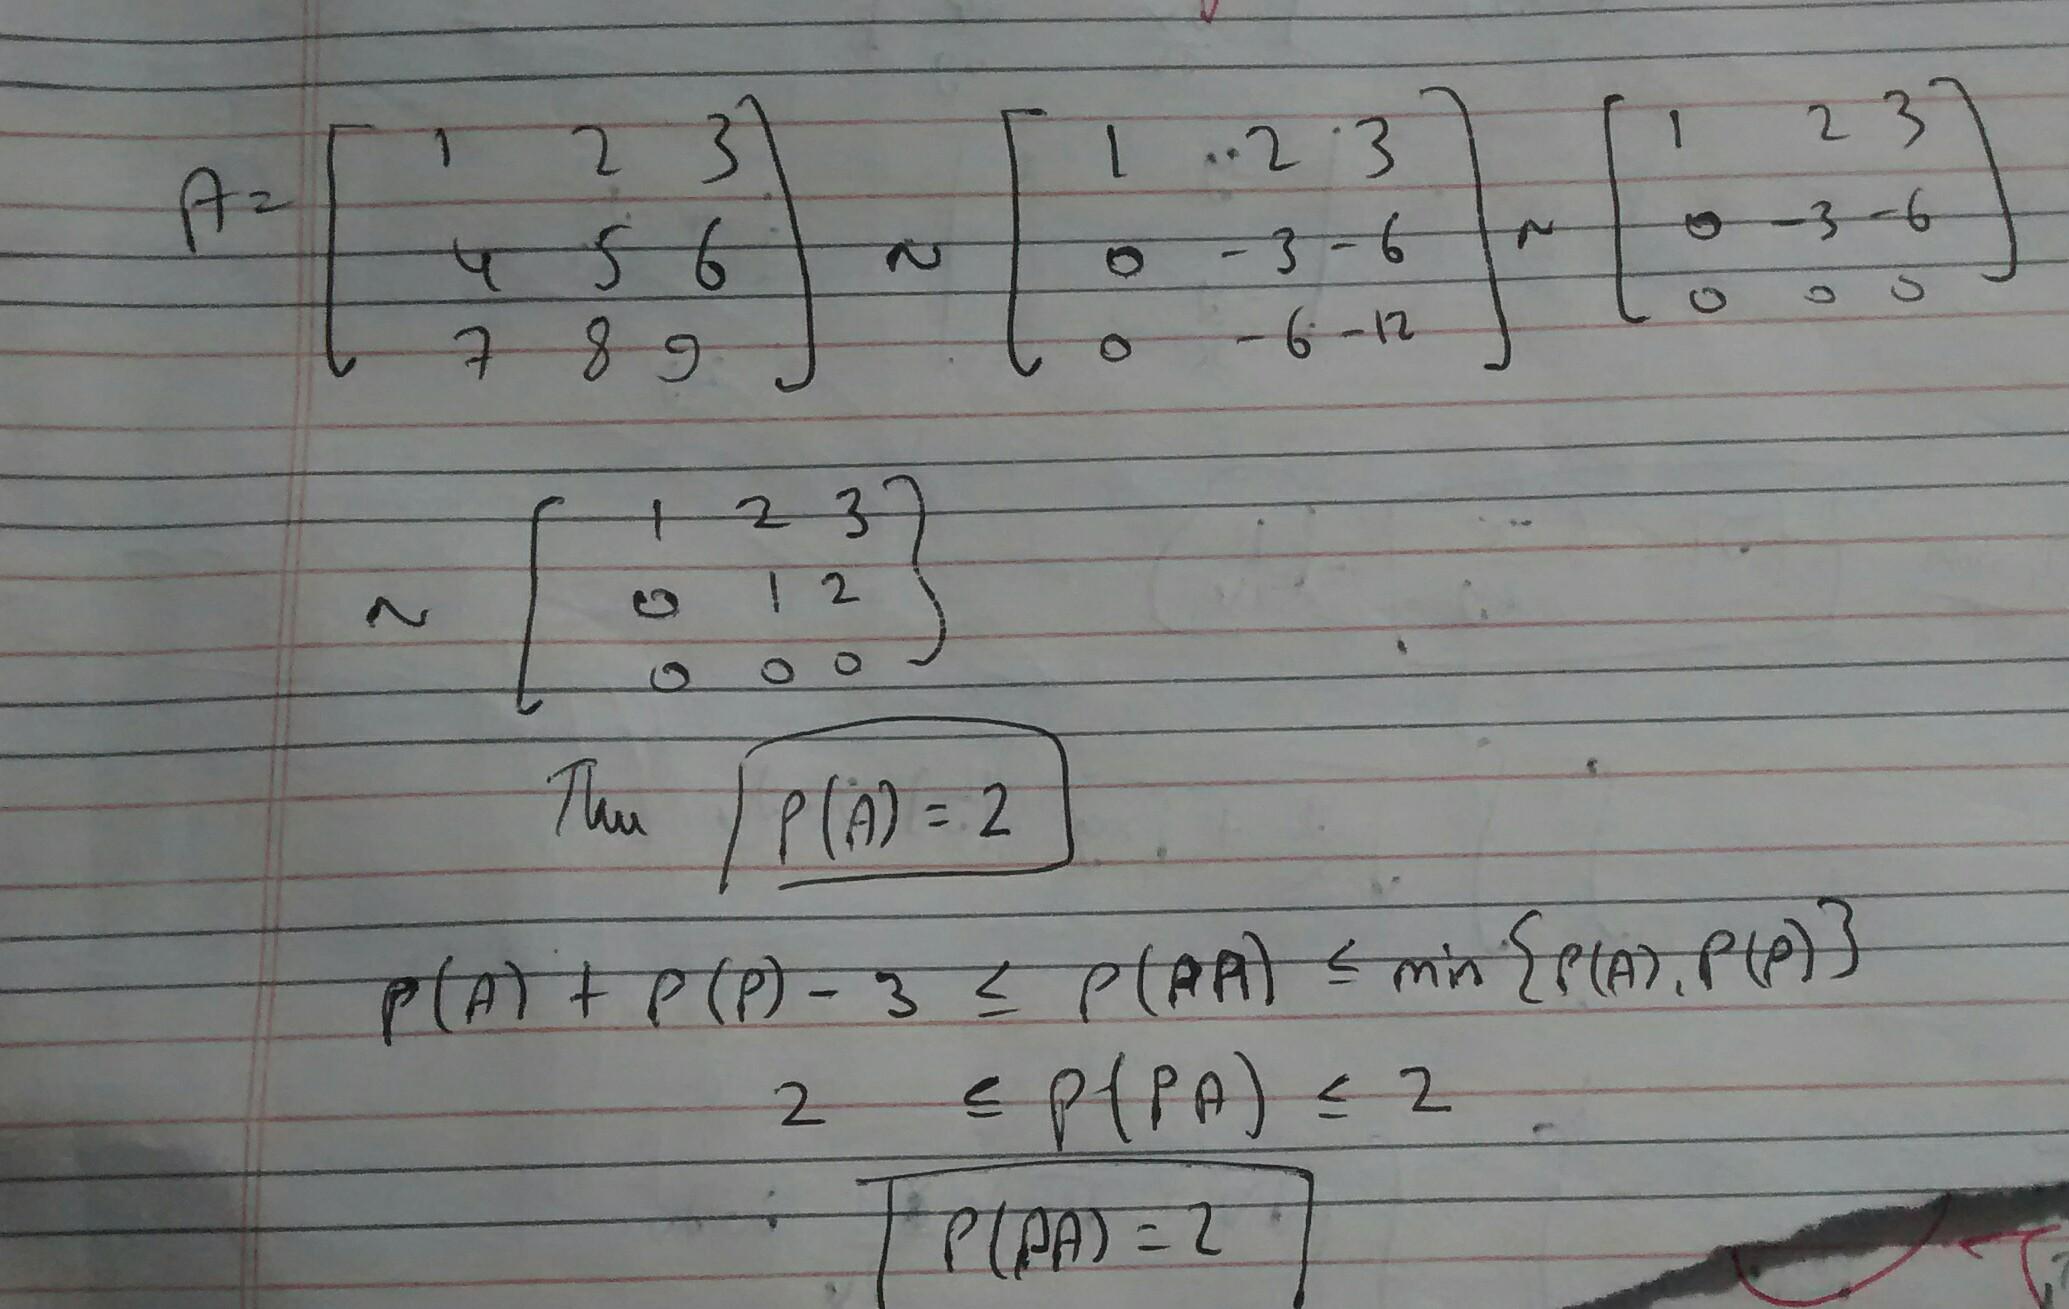 A = [ 1 2 3 ; 4 5 6 ; 7 8 9 ] ~ [ 1 2 3 ; 0 -3 -6 ; 0 -6 -12 ] ~ [ 1 2 3 ; 0 -3 -6 ; 0 0 0 ]
~ [ 1 2 3 ; 0 1 2 ; 0 0 0 ]
Thus ρ(A) = 2
ρ(A) + ρ(P) - 3 ≤ ρ(PA) ≤ min {ρ(A), ρ(P)}
2 ≤ ρ(PA) ≤ 2
ρ(PA) = 2